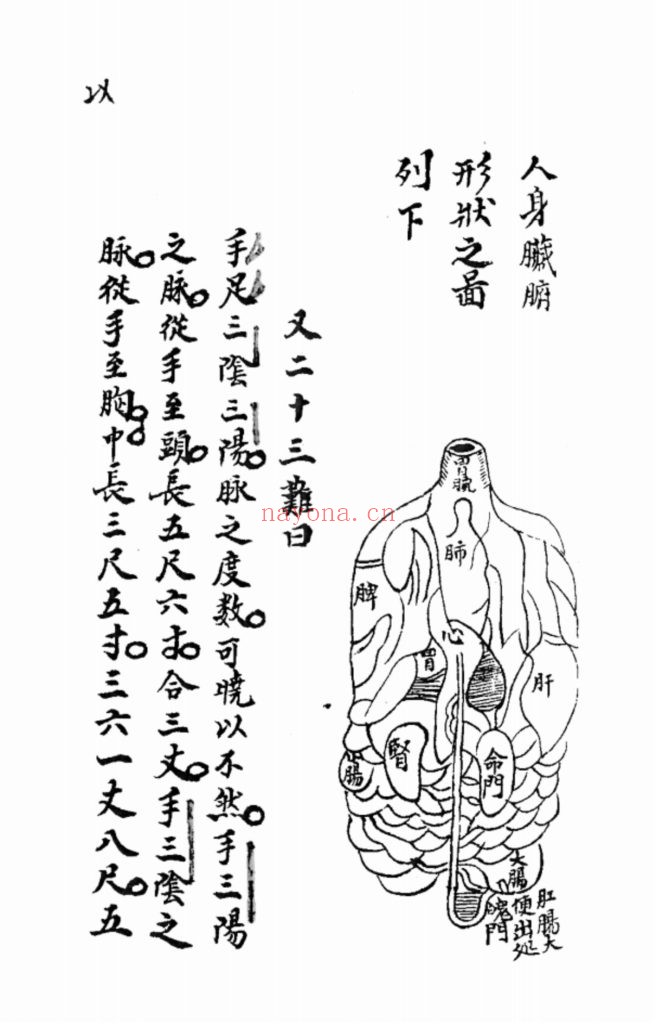 人身臟腑
形狀之圖
列下
胃脘
肺
脾
心
胃
肝
腎
命門
小腸
大腸
魄門
肛腸大
便出处
又二十三難曰
手足三陰三陽脉之度数可曉以不然手三陽
之脉從手至頭長五尺六寸合三丈手三陰之
脉從手至胸中長三尺五寸三六一丈八尺五
以
nayona.cn